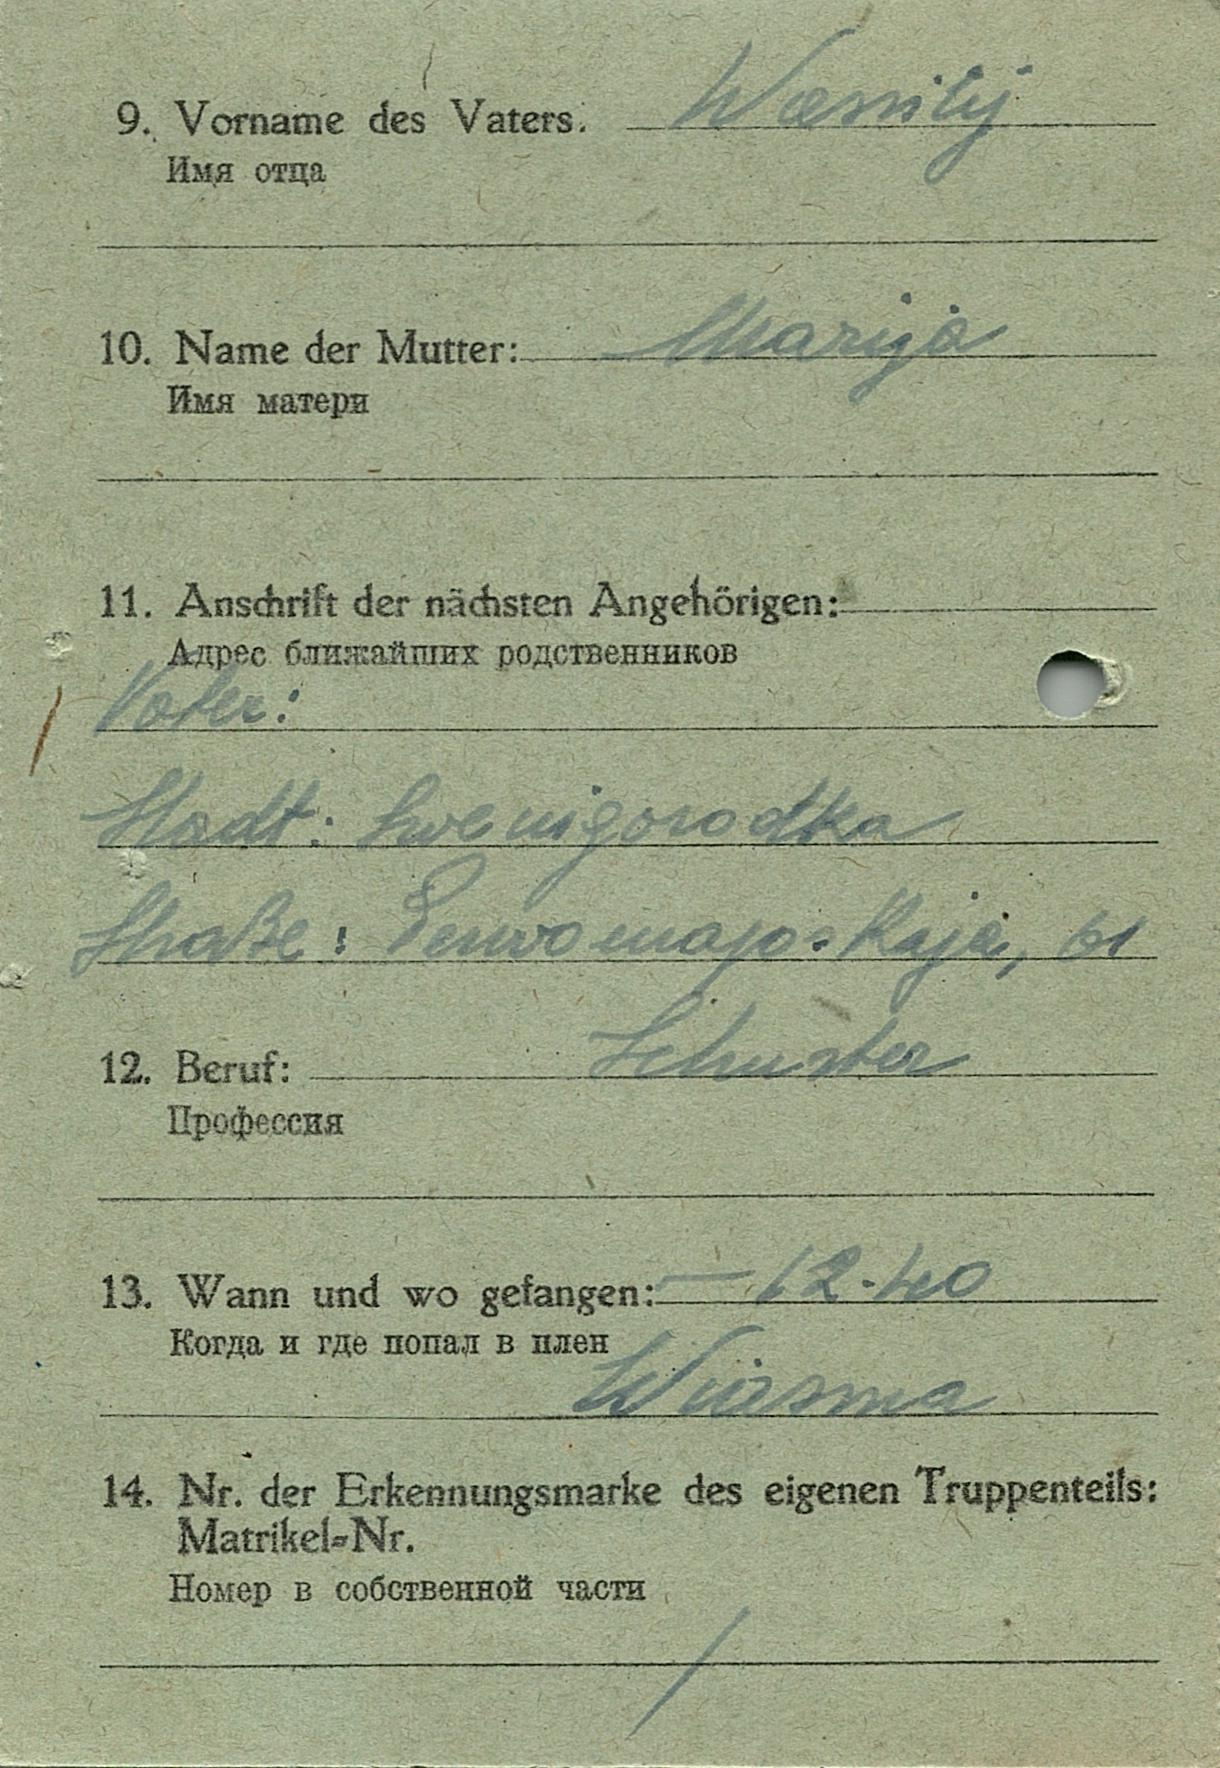 9. Vorname des Vaters. Wassilij
Имя отца
10. Name der Mutter: Marija
Имя матери
11. Anschrift der nächsten Angehörigen:
Адрес ближайших родственников
Vater:
Stadt: Swenigorodka
Straße: Perwomajs-Kaja, 61
12. Beruf: Schuster
Профессия
13. Wann und wo gefangen: — 12.40
Когда и где попал в плен
Wiasma
14. Nr. der Erkennungsmarke des eigenen Truppenteils:
Matrikel-Nr.
Номер в собственной части
/